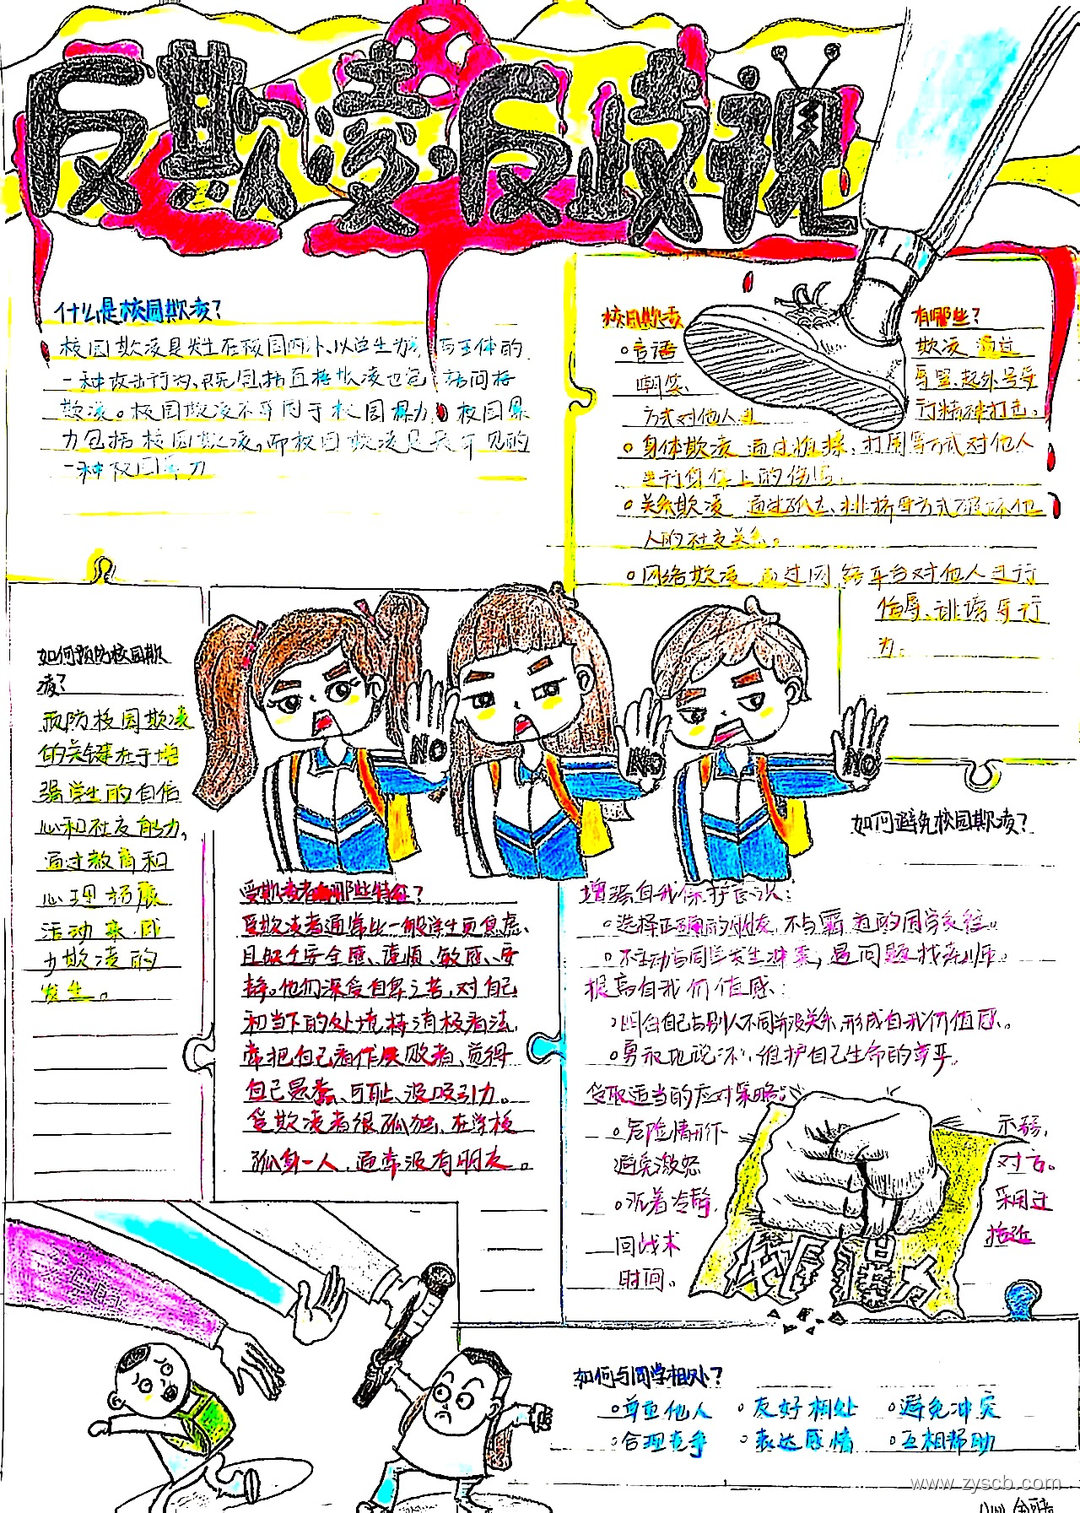 反欺凌 反歧视
什么是校园欺凌?
校园欺凌是发生在校园内外、以学生为
一种攻击行为、既包括直接欺凌也包括间接
欺凌。校园欺凌不等同于校园暴力,校园暴
力包括校园欺凌,而校园欺凌是最常见的
一种校园暴力
校园欺凌 有哪些?
言语 欺凌 通过
嘲笑、 辱骂、起外号等
方式对他人进行精神打击。
身体欺凌 通过推搡、打骂等方式对他人
进行身体上的伤害。
关系欺凌 通过孤立、挑拨等方式破坏他
人的社交关系。
网络欺凌 通过网络平台对他人进行
侮辱、诽谤等行
为。
如何预防校园欺
凌?
预防校园欺凌
的关键在于增
强学生的自信
心和社交能力,
通过教育和
心理拓展
活动来减
少欺凌的
发生。
NO NO NO
受欺凌者有哪些特征?
受欺凌者通常比一般学生更焦虑、
且缺乏安全感、谨慎、敏感、安
静。他们深受自卑之苦,对自己
和当下的处境持消极看法,
常把自己看作失败者,觉得
自己愚蠢、可耻、没吸引力。
受欺凌者很孤独、在学校
孤身一人、通常没有朋友。
如何避免校园欺凌?
增强自我保护意识:
选择正确的朋友,不与霸道的同学交往。
不主动与同学发生冲突,遇问题找老师。
提高自我价值感:
明白自己与别人不同并没关系,形成自我价值感。
勇敢地说“不”,维护自己生命的尊严。
采取适当的应对策略:
危险情形下 示弱,
避免激怒 对方。
沉着冷静, 采用迂
回战术 拖延
时间。
校园暴力
如何与同学相处?
尊重他人 友好相处 避免冲突
合理竞争 表达感情 互相帮助
www.zyscb.com